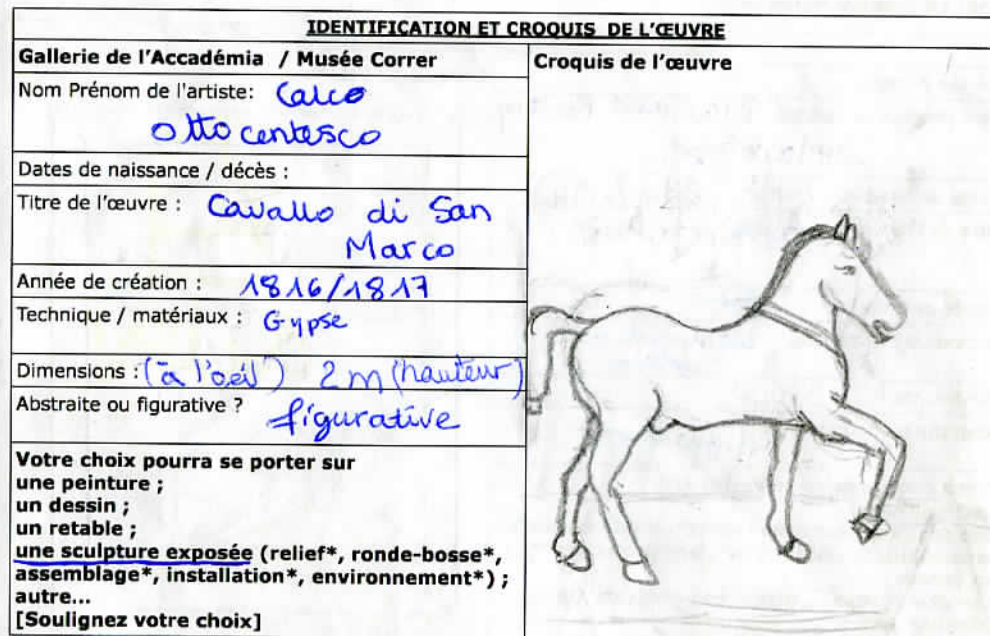 IDENTIFICATION ET CROQUIS DE L'ŒUVRE
Gallerie de l'Accadémia / Musée Correr
Nom Prénom de l'artiste: Calco
Ottocentesco
Dates de naissance / décès :
Titre de l'œuvre : Cavallo di San
Marco
Année de création : 1816/1817
Technique / matériaux : Gypse
Dimensions : ("à l'oeil") 2m (hauteur)
Abstraite ou figurative ? figurative
Votre choix pourra se porter sur
une peinture ;
un dessin ;
un retable ;
une sculpture exposée (relief*, ronde-bosse*,
assemblage*, installation*, environnement*) ;
autre...
[Soulignez votre choix]
Croquis de l'œuvre